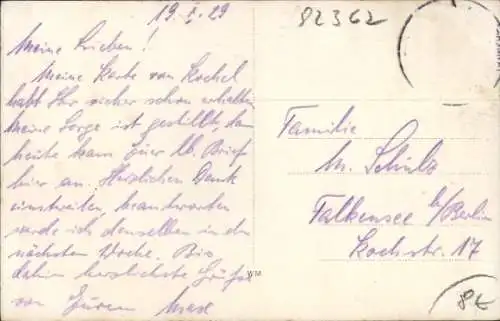 19. X. 29
82362
Meine Lieben!
Meine Karte von Kochel
habt Ihr sicher schon erhalten
Meine Sorge ist gestillt, denn
heute kam Euer lb. Brief
hier an. Herzlichen Dank
einstweilen, beantworten
werde ich denselben in der
nächsten Woche. Bis
dahin herzlichste Grüße
von Eurem Max
Familie
M. Schulz
Falkensee b/Berlin
Kochstr. 17
WM
8€